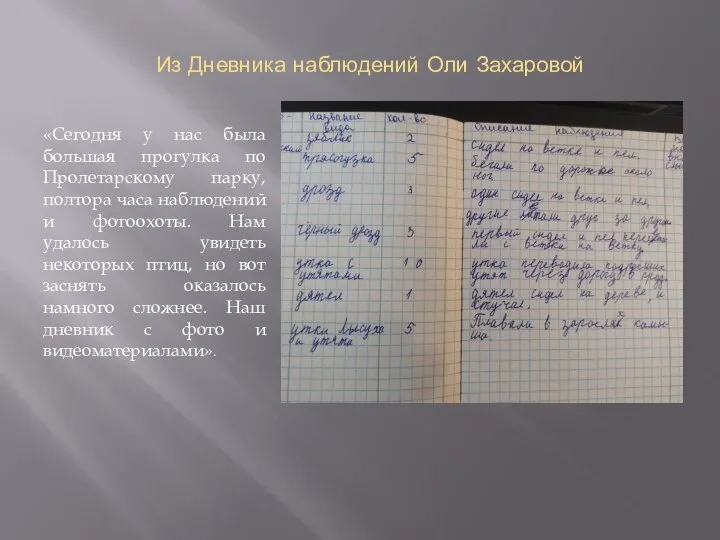 Из Дневника наблюдений Оли Захаровой
«Сегодня у нас была
большая прогулка по
Пролетарскому парку,
полтора часа наблюдений
и фотоохоты. Нам
удалось увидеть
некоторых птиц, но вот
заснять оказалось
намного сложнее. Наш
дневник с фото и
видеоматериалами».
Название
вида
кол-во
зяблик 2
трясогузка 5
дрозд 3
чёрный дрозд 3
утка с
утятами 10
дятел 1
утки лысуха
и утята 5
Описание наблюдения
сидел на ветке и пел.
бегали по дорожке около
ног.
один сидел на ветке и пел,
другие летали друг за другом
первый сидел и пел
ли с ветки на ветку
утка переводила подросших
утят через дорогу в пруд.
дятел сидел на дереве и
стучал.
Плавали в зарослях камы-
ша.